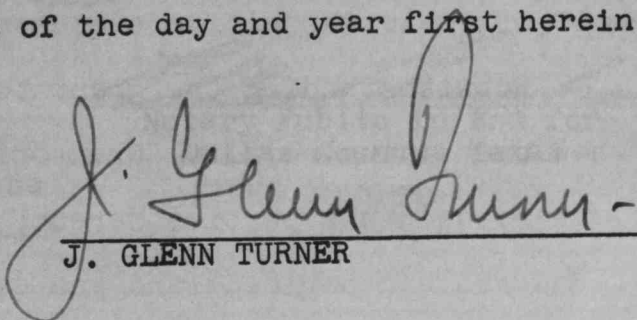 of the day and year first herein
J. Glenn Turner
J. GLENN TURNER